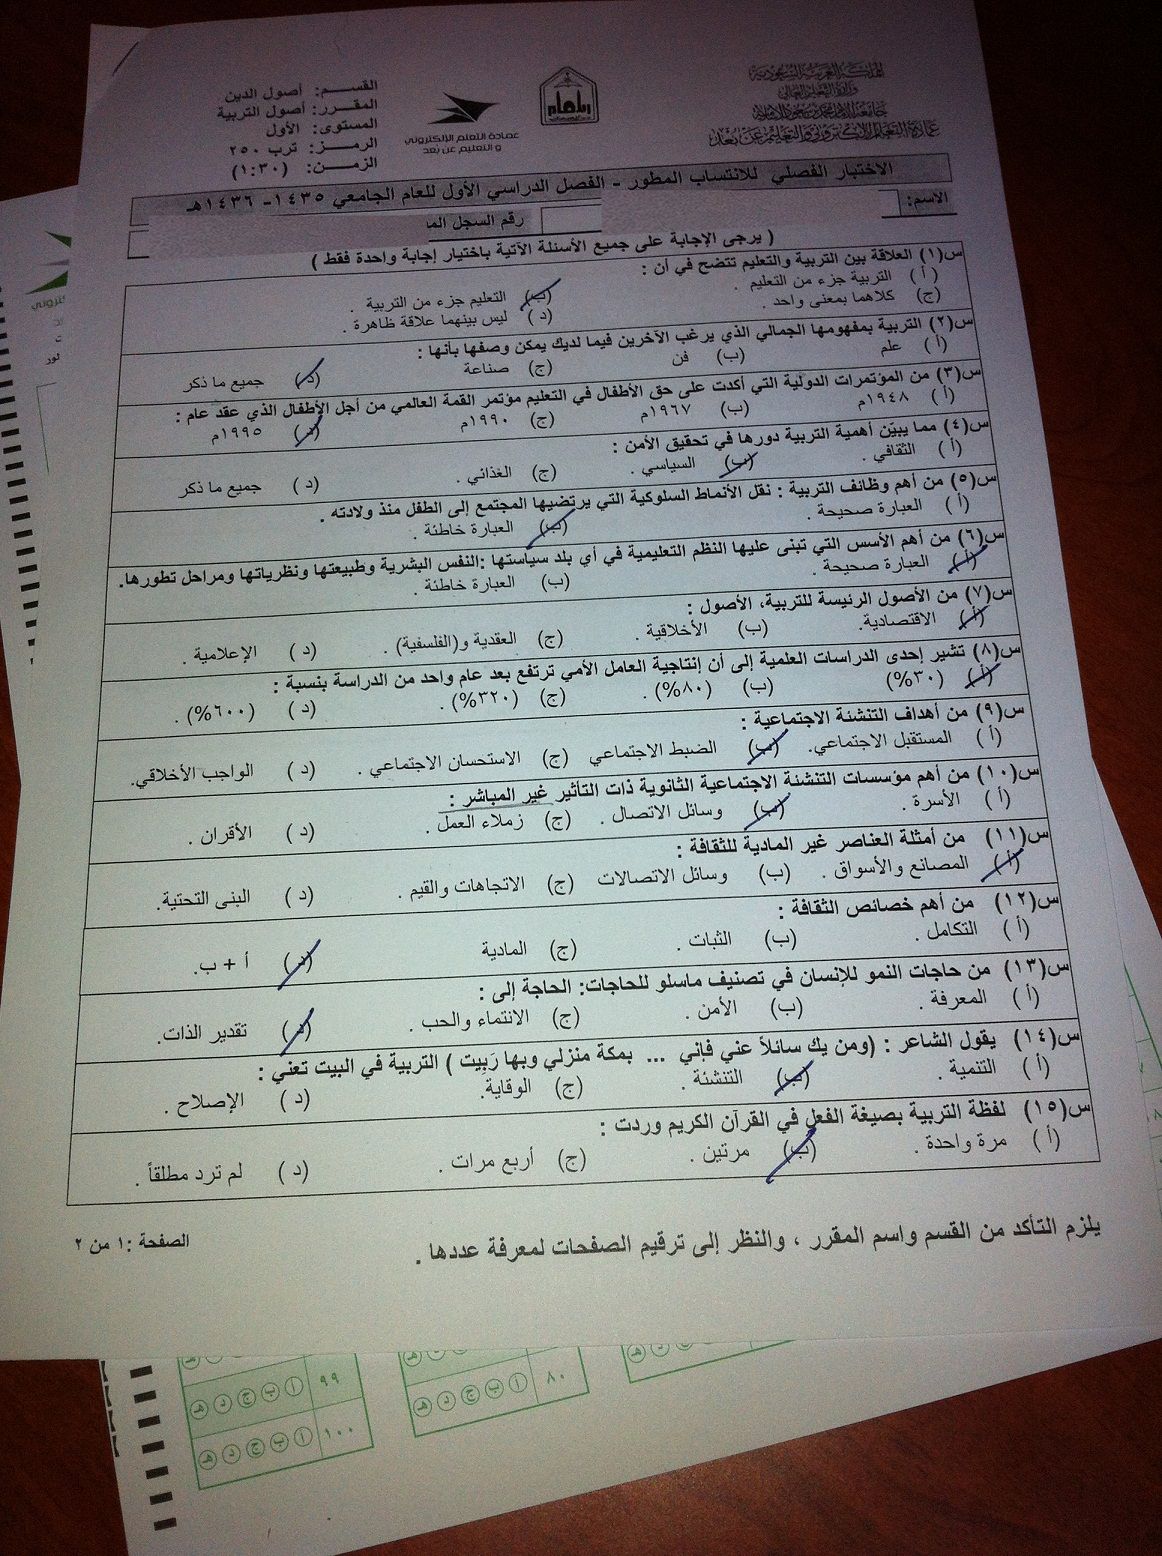 المملكة العربية السعودية
وزارة التعليم العالي
جامعة الإمام محمد بن سعود الإسلامية
عمادة التعليم الإلكتروني والتعليم عن بعد
عمادة التعلم الإلكتروني
والتعليم عن بعد
القسم: أصول الدين
المقرر: أصول التربية
المستوى: الأول
الرمز: ترب ٢٥٠
الزمن: (١:٣٠)
الاختبار الفصلي للانتساب المطور - الفصل الدراسي الأول للعام الجامعي ١٤٣٥- ١٤٣٦هـ
الاسم:
رقم السجل
( يرجى الإجابة على جميع الأسئلة الآتية باختيار إجابة واحدة فقط )
س(١) العلاقة بين التربية والتعليم تتضح في أن :
( أ ) التربية جزء من التعليم . (ب) التعليم جزء من التربية .
(ج) كلاهما بمعنى واحد . ( د ) ليس بينهما علاقة ظاهرة .
س(٢) التربية بمفهومها الجمالي الذي يرغب الآخرين فيما لديك يمكن وصفها بأنها :
( أ ) علم (ب) فن (ج) صناعة ( د ) جميع ما ذكر
س(٣) من المؤتمرات الدولية التي أكدت على حق الأطفال في التعليم مؤتمر القمة العالمي من أجل الأطفال الذي عقد عام :
( أ ) ١٩٤٨م (ب) ١٩٦٧م (ج) ١٩٩٠م ( د ) ١٩٩٥م
س(٤) مما يبيّن أهمية التربية دورها في تحقيق الأمن :
( أ ) الثقافي . (ب) السياسي . (ج) الغذائي . ( د ) جميع ما ذكر
س(٥) من أهم وظائف التربية : نقل الأنماط السلوكية التي يرتضيها المجتمع إلى الطفل منذ ولادته .
( أ ) العبارة صحيحة . (ب) العبارة خاطئة .
س(٦) من أهم الأسس التي تبنى عليها النظم التعليمية في أي بلد سياستها :النفس البشرية وطبيعتها ونظرياتها ومراحل تطورها.
( أ ) العبارة صحيحة . (ب) العبارة خاطئة .
س(٧) من الأصول الرئيسة للتربية، الأصول :
( أ ) الاقتصادية. (ب) الأخلاقية . (ج) العقدية و(الفلسفية) . ( د ) الإعلامية .
س(٨) تشير إحدى الدراسات العلمية إلى أن إنتاجية العامل الأمي ترتفع بعد عام واحد من الدراسة بنسبة :
( أ ) (٣٠%) (ب) (٨٠%) . (ج) (٣٢٠%) . ( د ) (٦٠٠%) .
س(٩) من أهداف التنشئة الاجتماعية :
( أ ) المستقبل الاجتماعي. (ب) الضبط الاجتماعي (ج) الاستحسان الاجتماعي . ( د ) الواجب الأخلاقي.
س(١٠) من أهم مؤسسات التنشئة الاجتماعية الثانوية ذات التأثير غير المباشر :
( أ ) الأسرة . (ب) وسائل الاتصال . (ج) زملاء العمل . ( د ) الأقران .
س(١١) من أمثلة العناصر غير المادية للثقافة :
( أ ) المصانع والأسواق . (ب) وسائل الاتصالات (ج) الاتجاهات والقيم . ( د ) البنى التحتية.
س(١٢) من أهم خصائص الثقافة :
( أ ) التكامل . (ب) الثبات . (ج) المادية ( د ) أ + ب.
س(١٣) من حاجات النمو للإنسان في تصنيف ماسلو للحاجات: الحاجة إلى :
( أ ) المعرفة . (ب) الأمن . (ج) الانتماء والحب . ( د ) تقدير الذات.
س(١٤) يقول الشاعر : (ومن يك سائلاً عني فإني ... بمكة منزلي وبها رَبِيت ) التربية في البيت تعني :
( أ ) التنمية . (ب) التنشئة . (ج) الوقاية. ( د ) الإصلاح .
س(١٥) لفظة التربية بصيغة الفعل في القرآن الكريم وردت :
( أ ) مرة واحدة . (ب) مرتين . (ج) أربع مرات . ( د ) لم ترد مطلقاً .
يلزم التأكد من القسم واسم المقرر ، والنظر إلى ترقيم الصفحات لمعرفة عددها .
الصفحة :١ من ٢
٨٠ ا ب ج د هـ
٩٩ ا ب ج د هـ
١٠٠ ا ب ج د هـ